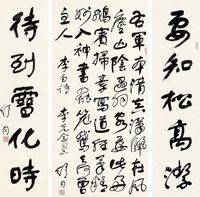 要知松高潔
右軍本清真瀟灑在風
塵山陰遇羽客要此好
鵝賓掃素寫道經筆精
妙入神書罷籠鵝去何曾別
主人 李白詩 舒同
待到雪化時
舒同